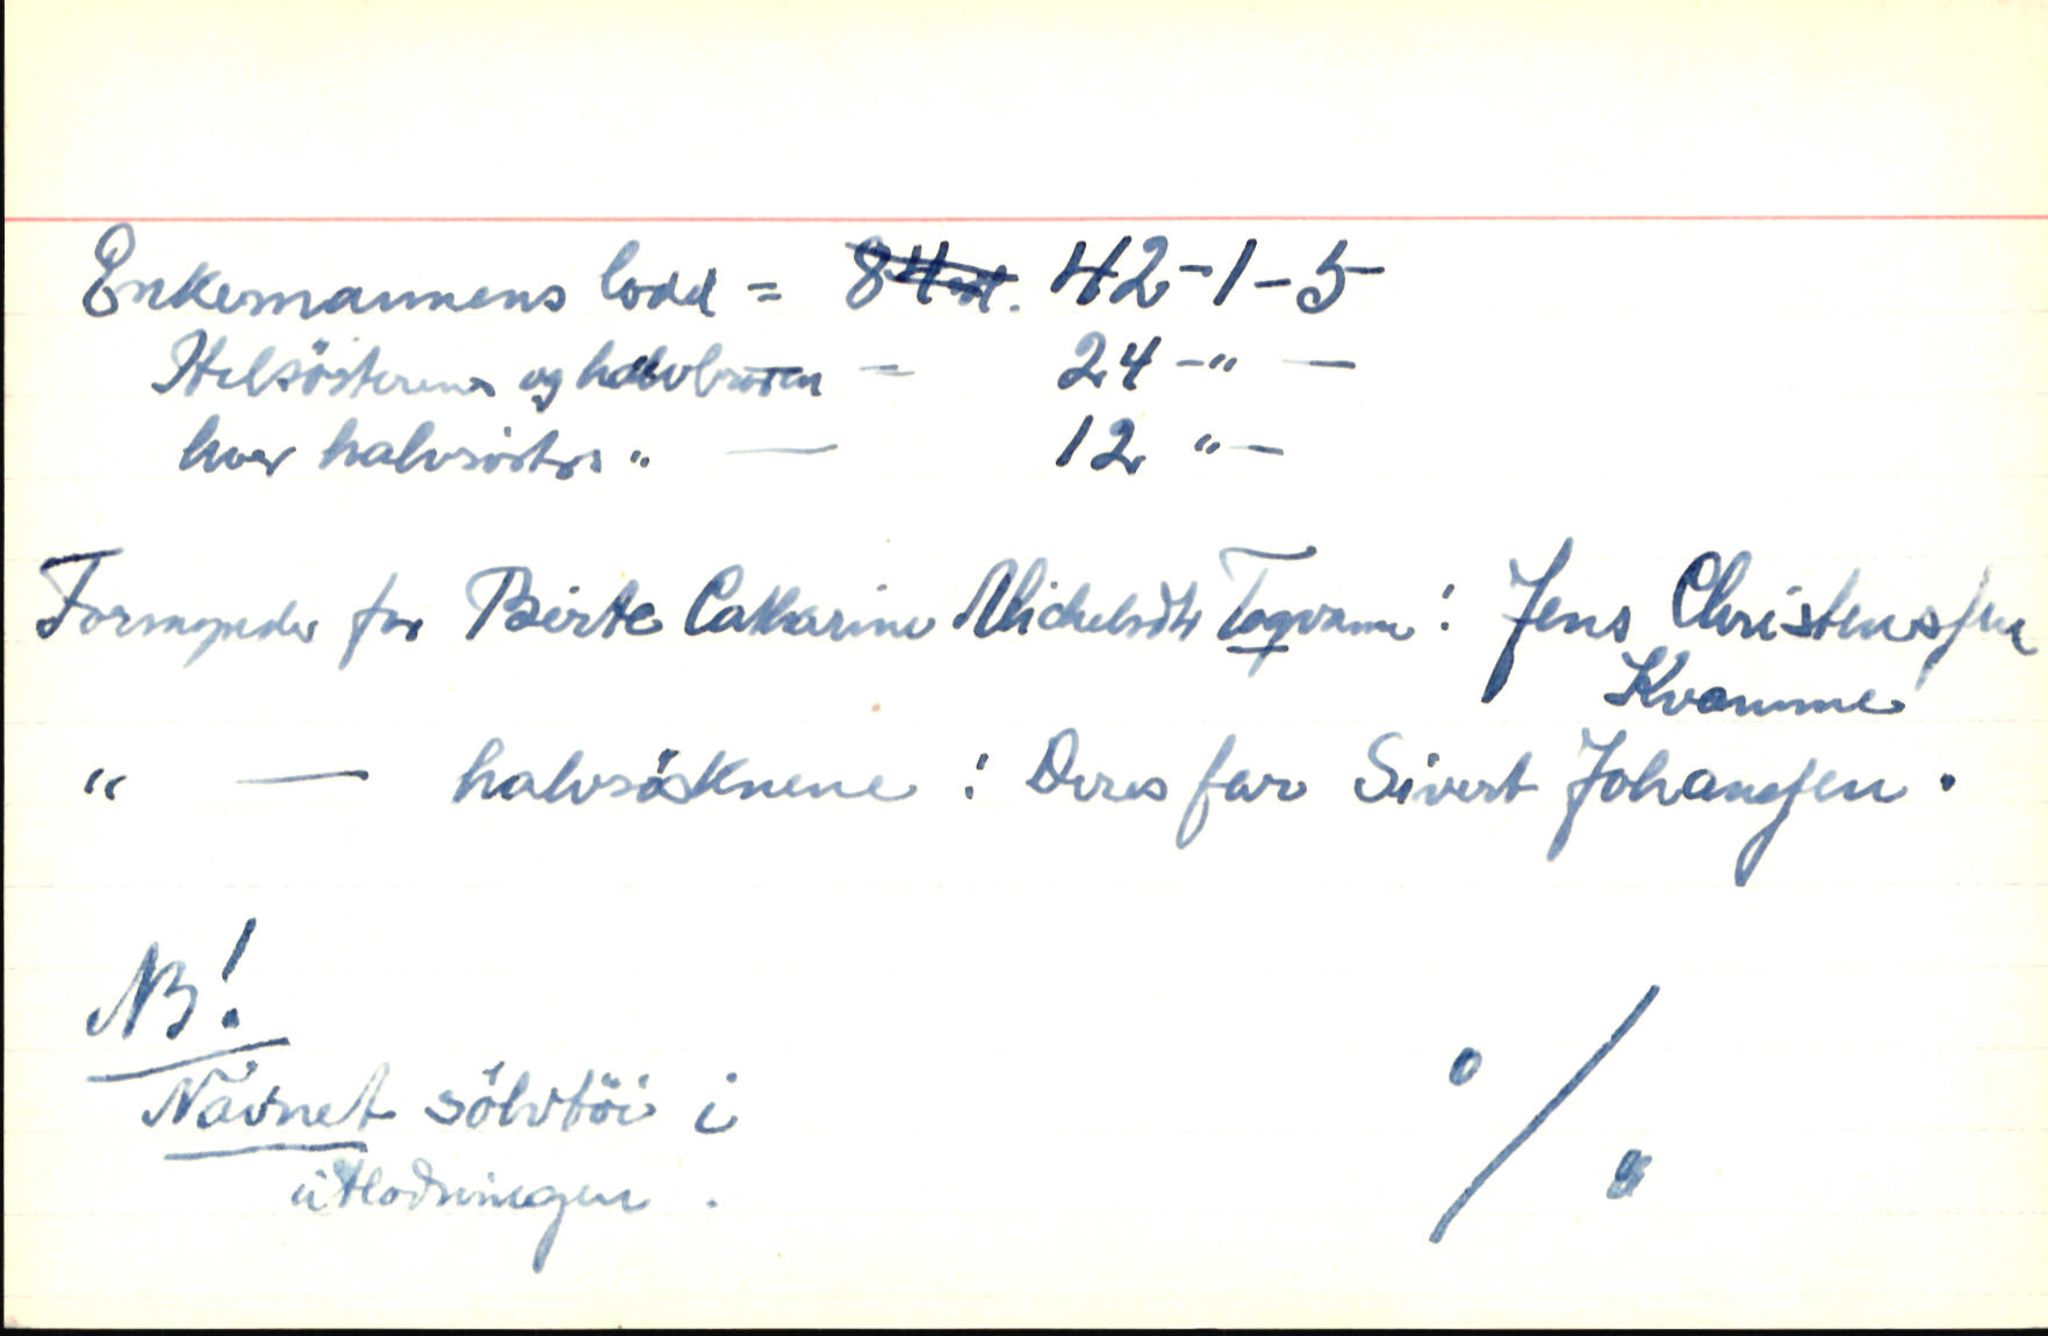 Enkemannens lodd = 42-1-5
Helsösterens og halvbroren = 24 -" —
hver halvsösters " — 12 " —
Formynder for Birte Catharine Michelsdtr Togvam : Jens Christensen
Kvamme
" — halvsösknene : Deres far Sivert Johansen .
NB!
Nävnet sölvtöi i
ütlodningen .
%